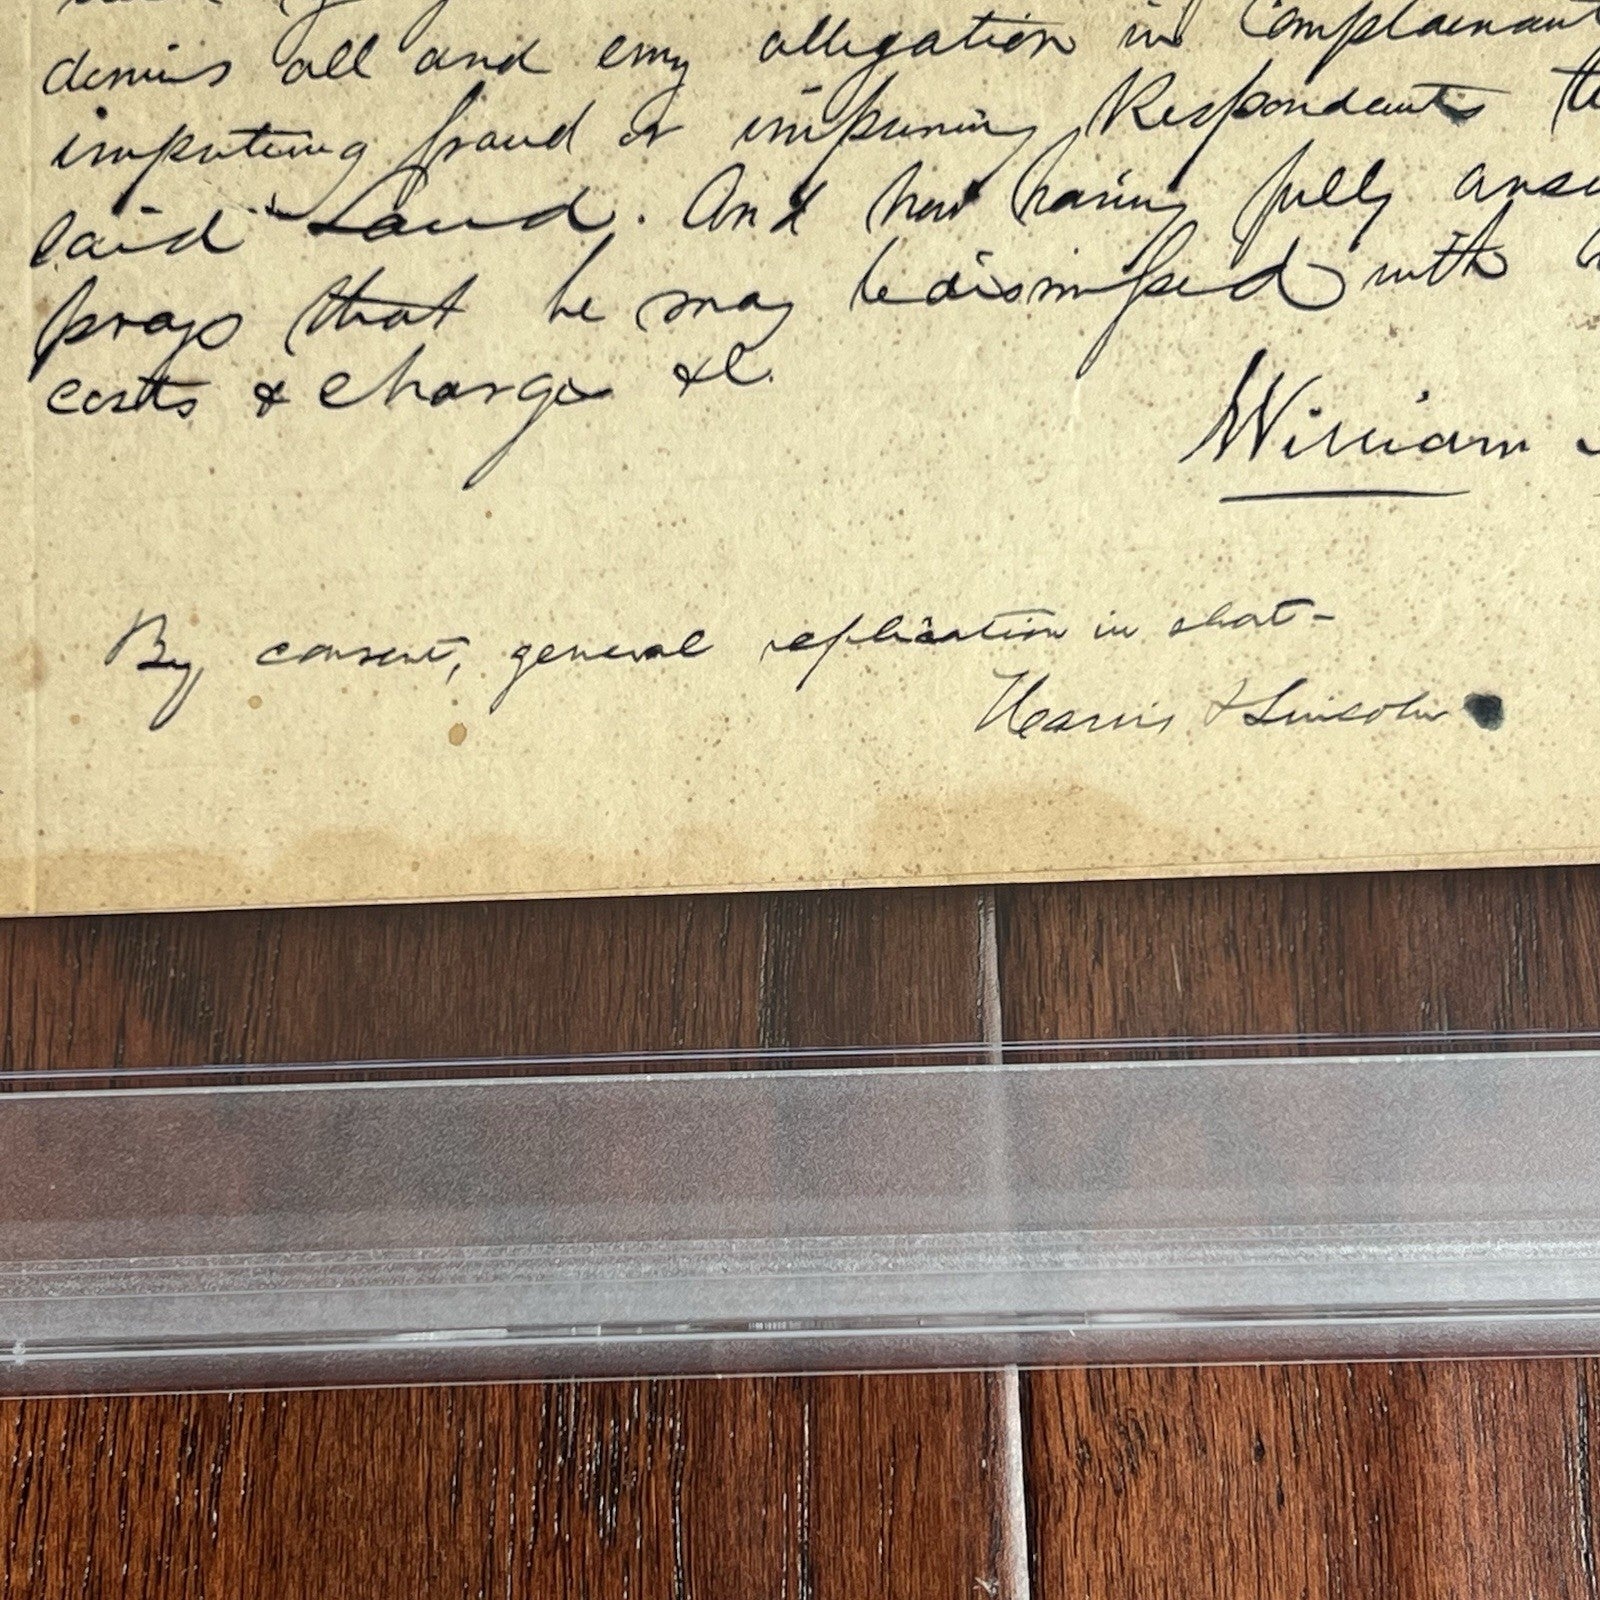 denies all and any allegation in Complainant
imputing fraud or impuning Respondants
said Land. And now having fully
prays that he may be dismissed with
costs & charges &C.
William
By consent, general replication in short-
Harris & Lincoln